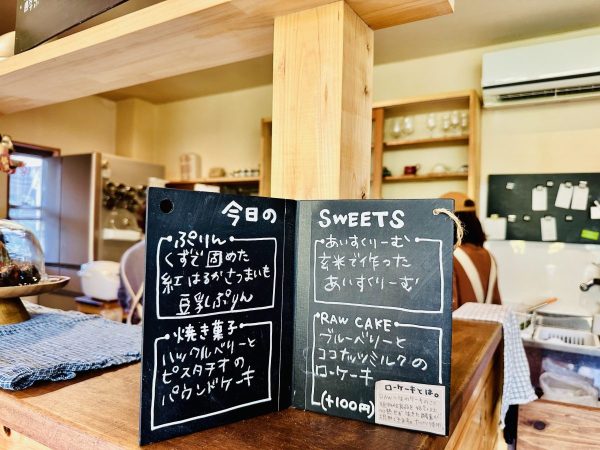 今日の
ぷりん
くずで固めた
紅はるかさつまいも
豆乳ぷりん
焼き菓子
ハックルベリーと
ピスタチオの
パウンドケーキ
SWEETS
あいすくりーむ
玄米で作った
あいすくりーむ
RAW CAKE
ブルーベリーと
ココナッツミルクの
ローケーキ
(+100円)
ローケーキとは。